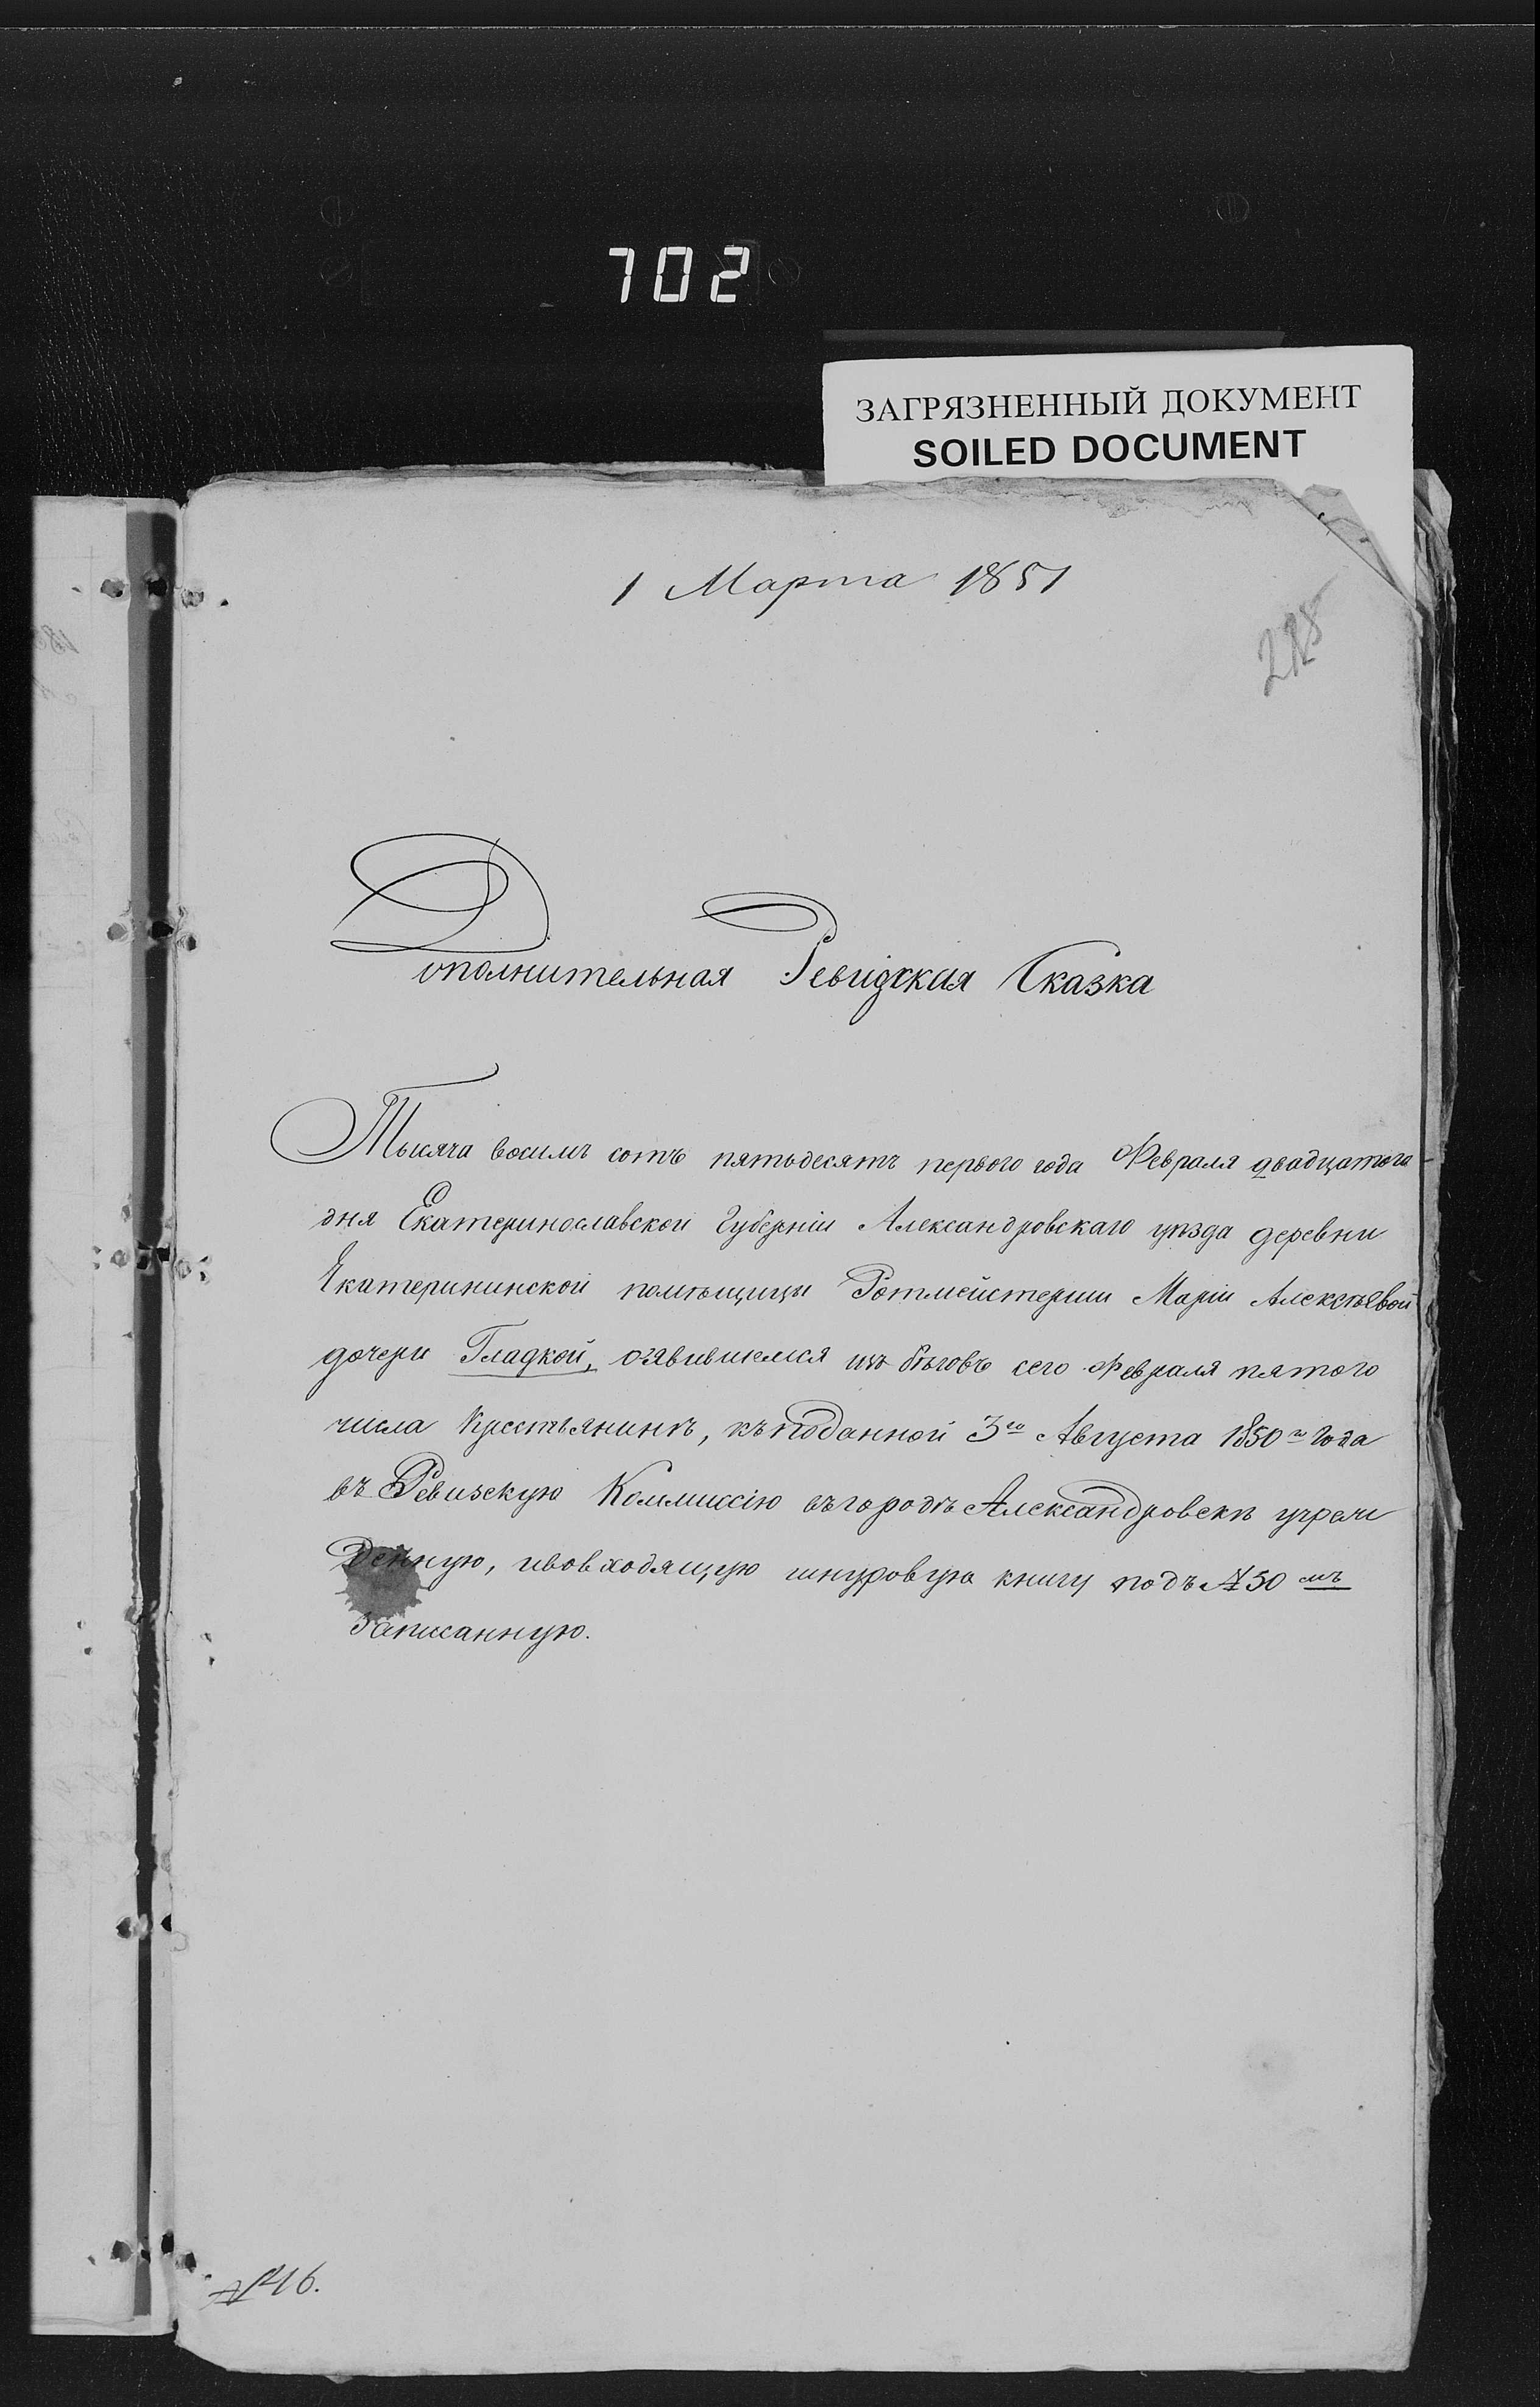 702
ЗАГРЯЗНЕННЫЙ ДОКУМЕНТ
SOILED DOCUMENT
1 Марта 1851
Дополнительная Ревизкая Сказка
Тысяча восимъ сотъ пятьдесятъ первого года Февраля двадцатого
дня Екатеринославской Губерніи Александровскаго уѣзда деревни
Екатерининской помѣщицы Ротмейстерши Маріи Алексѣевой
дочери Гладкой, оявившемся изъ бѣговъ сего Февраля пятого
числа Крестьянинѣ, къ поданной 3го Августа 1850го Года
въ Ревизскую Коммиссію въ городѣ Александровскѣ учреж
денную, и во входящую шнуровую книгу подъ № 50мъ
Записанную.
№ 46.